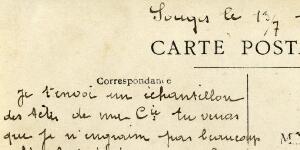 Souges le 13/7
CARTE POST
Correspondance
Je t'envoi un échantillon
des têtes de ma Cie tu veras
que je n'engraim pas beaucoup